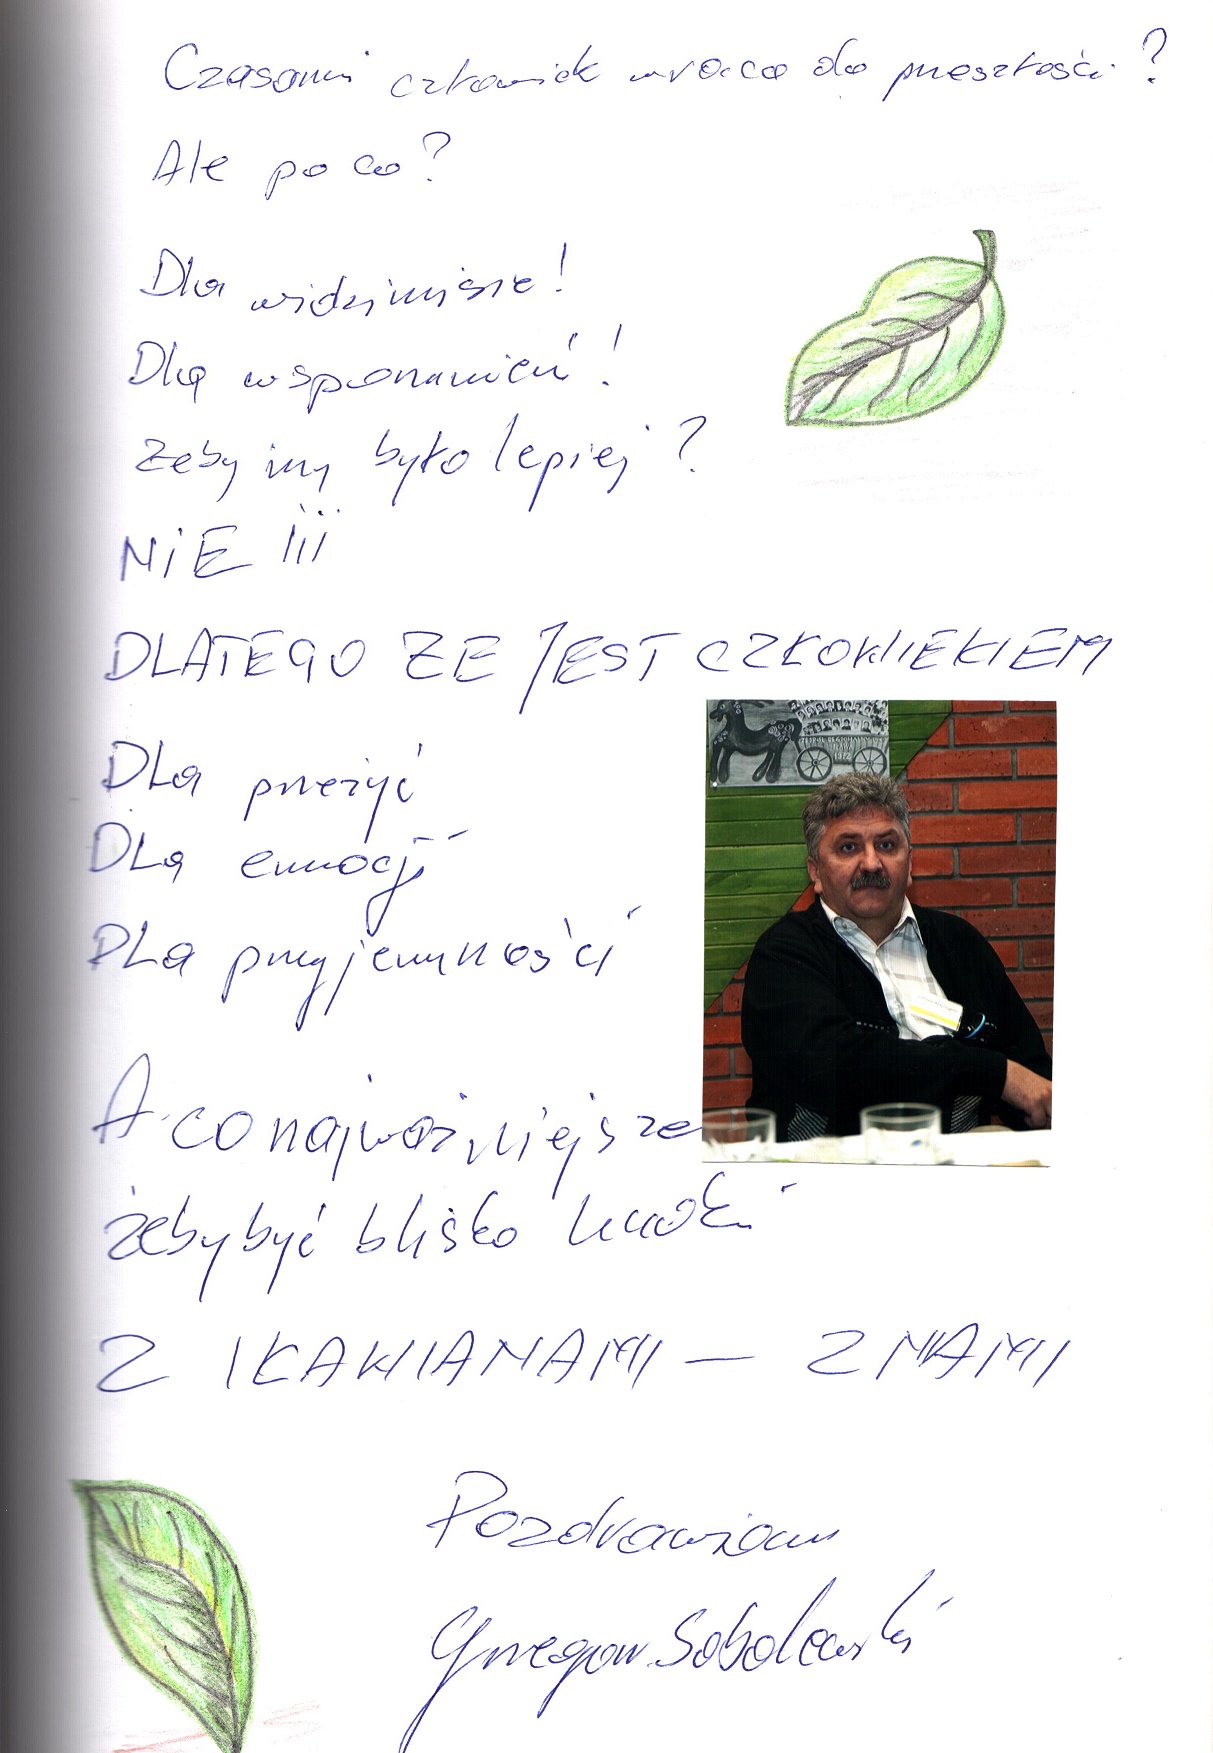 Czasami człowiek wraca do przeszłości?
Ale po co?
Dla widzimisie!
Dla wspomnień!
Żeby im było lepiej?
NIE !!!
DLATEGO ZE JEST CZŁOWIEKIEM
Dla przeżyć
Dla emocji
Dla przyjemności
A co najważniejsze
żeby być blisko
Z IŁAWIANAMI — Z NAMI
Pozdrawiam
Grzegorz Sobolewski
1972